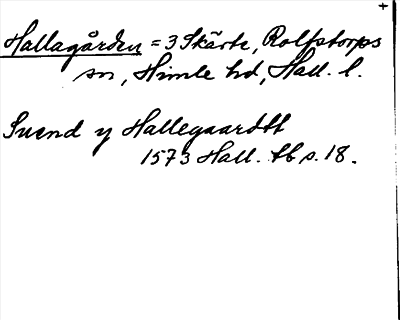 Hallagården = 3 Skärte, Rolfstorps
sn, Himle hd, Hall. l.
Suend y Hallegaardtt
1573 Hall. tb s. 18.